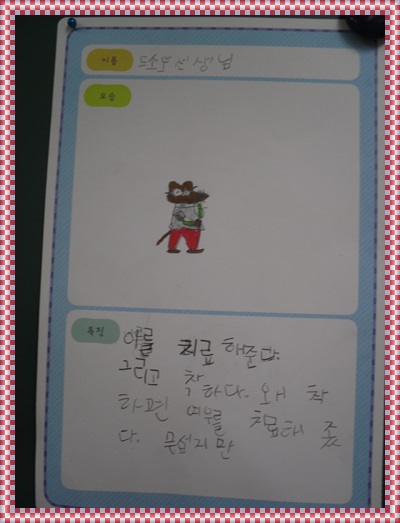 이름 드소토 선생님
모습
특징 이를 치료 해준다.
그리고 착하다. 왜 착
하면 여우를 치료해 줬
다. 무섭지만